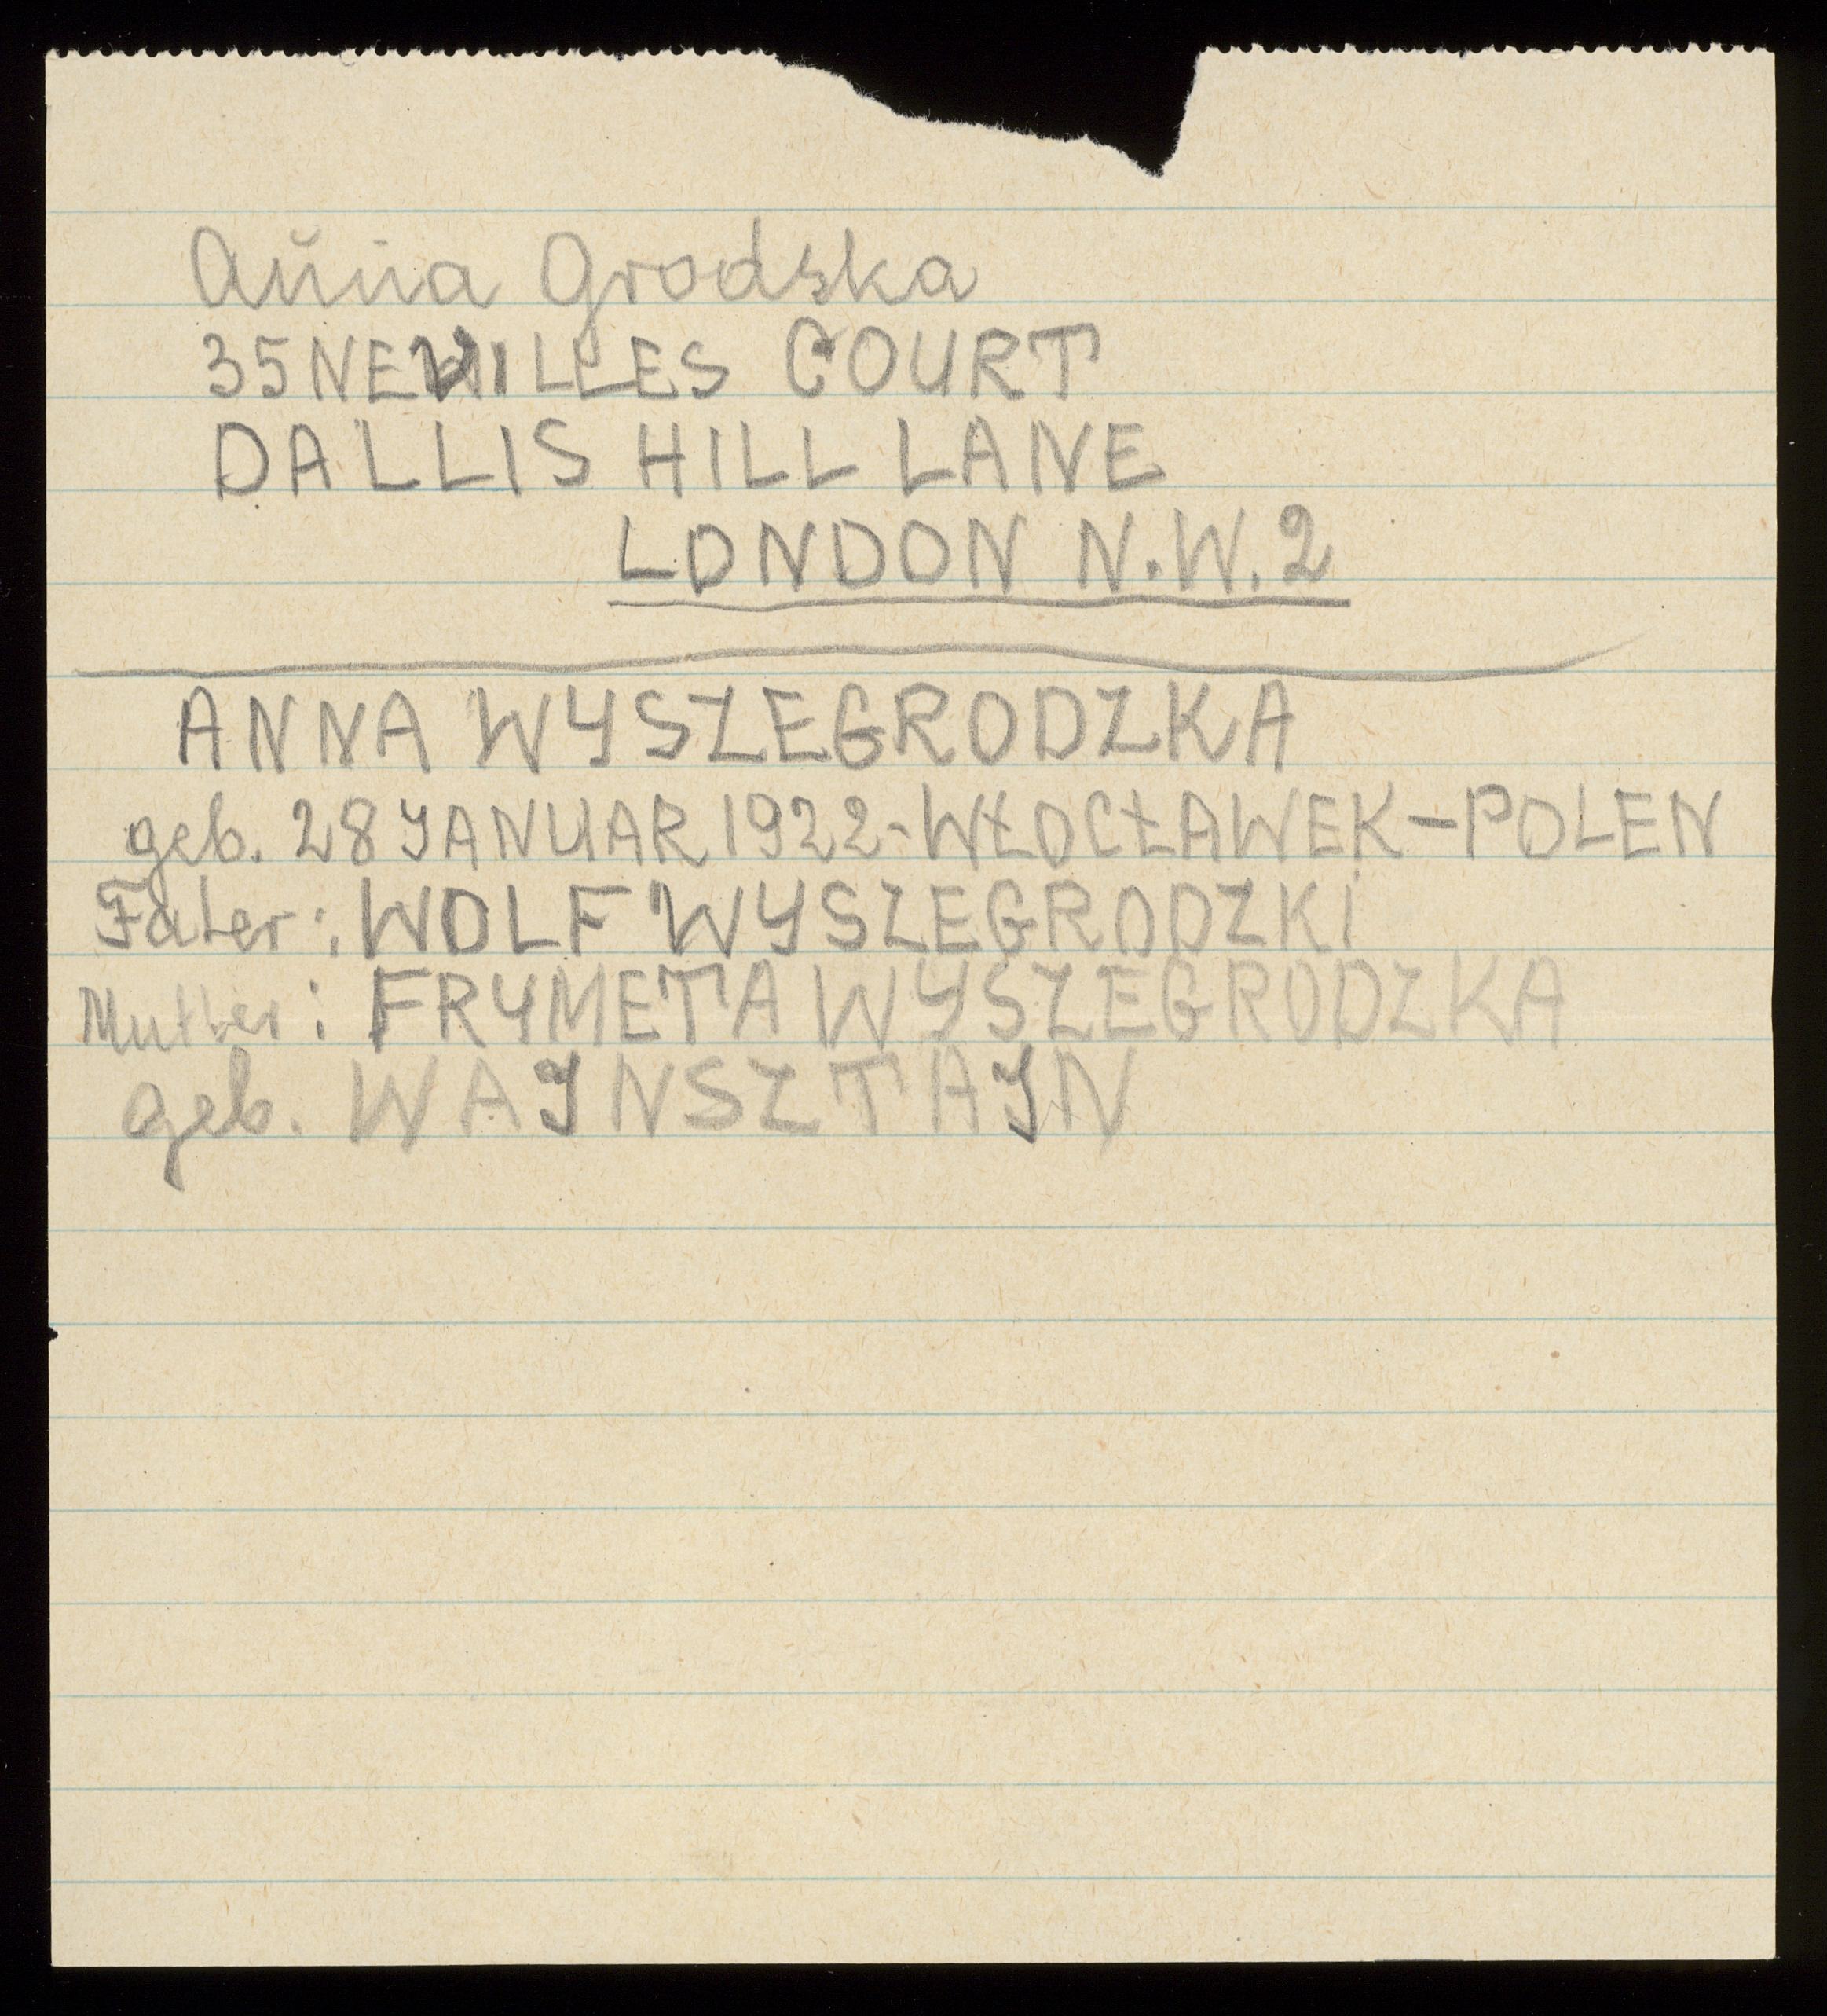 Anna Grodska
35 NEVILLES COURT
DALLIS HILL LANE
LONDON N.W.2
ANNA WYSZEGRODZKA
geb. 28 JANUAR 1922 - WŁOCŁAWEK - POLEN
Fater: WOLF WYSZEGRODZKI
Mutter: FRYMETA WYSZEGRODZKA
geb. WAJNSZTAJN